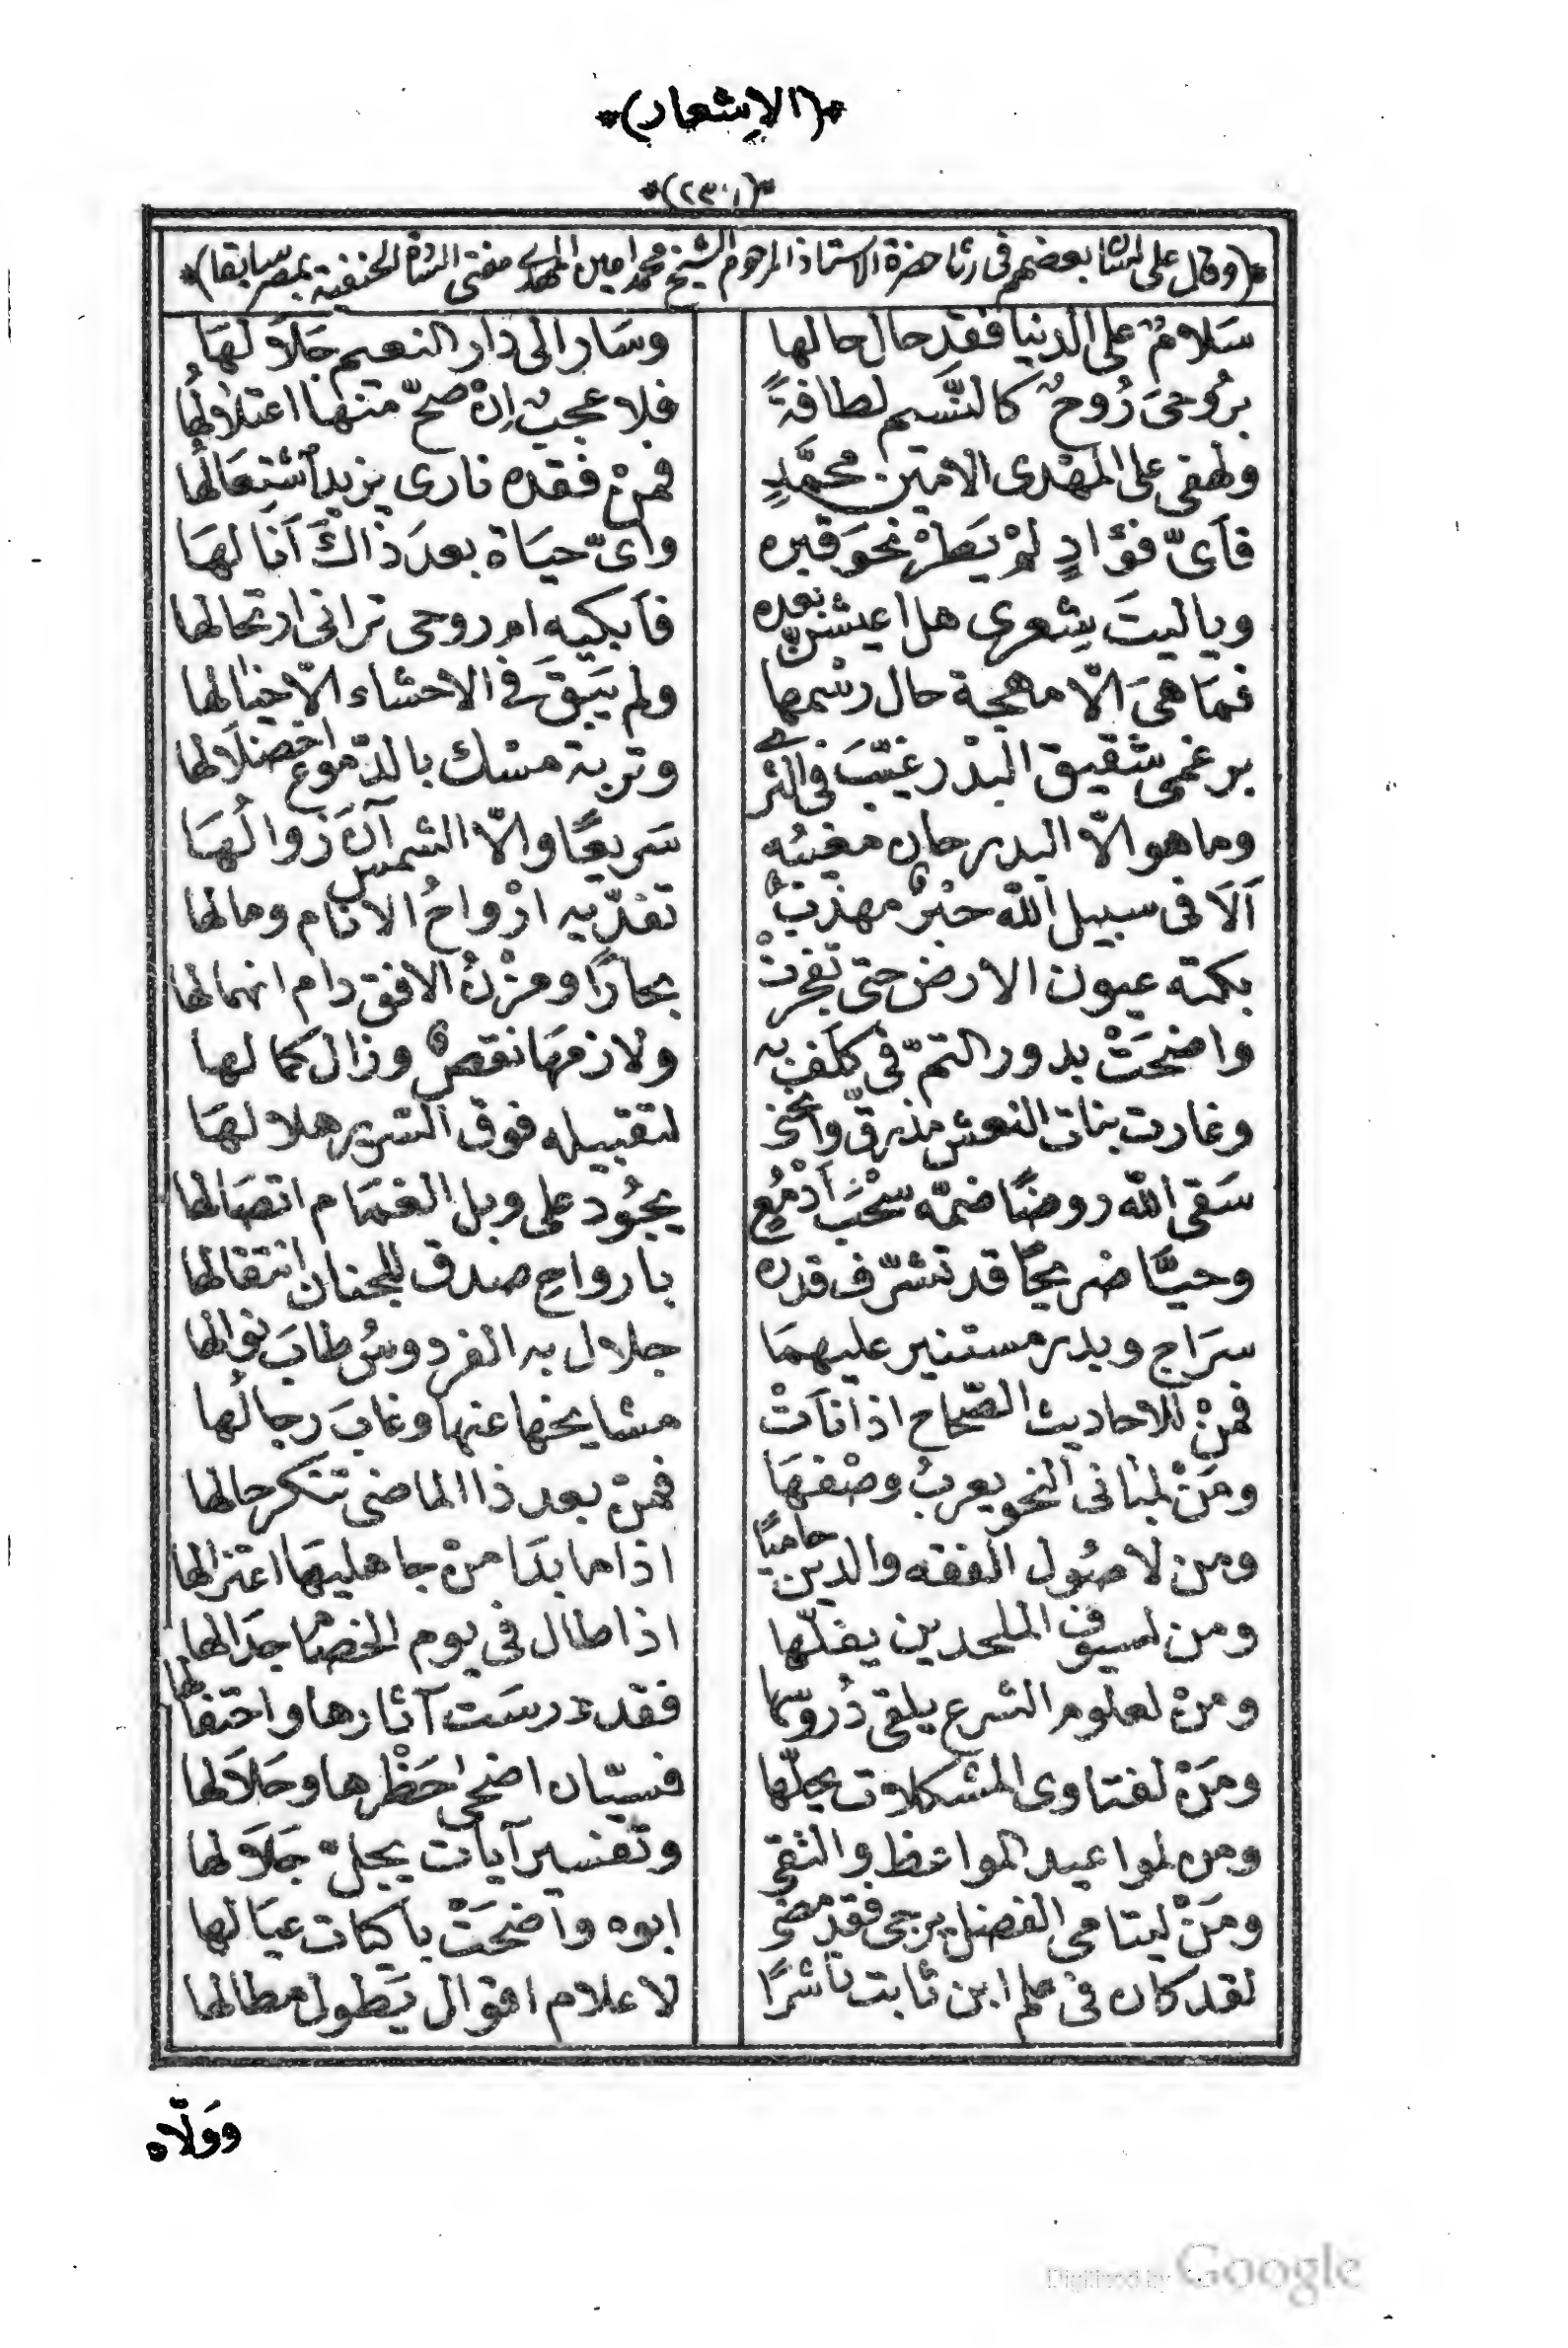 *(الإشعار)*
*(٢٣٠١)*
*(وقال على لسان بعضهم فى رثا حضرة الاستاذ المرحوم الشيخ محمد امين المهدى مفتى السادة الحنفية بمصر سابقا)*
سَلامٌ على الدنيا فقد حال حالها وسَار الى دار النعيم جَلَالهَا
برُوحىَ رُوحٌ كالنَّسيم لطافةً فلا عجبٌ اِنْ صحّ منها اعتلالُها
ولهفى على المهْدى الامين محمَّدٍ فمنْ فقده نارى يزيد اشتِعَالُها
فاَىّ فؤادٍ لمْ يَطرْ نحوَ قبره واىّ حيَاة بعدَ ذاكَ اَنا لهَا
وياليتَ شِعرى هل اعيشنّ بعده فأبكيه ام روحى ترانى ارتحالها
فمَا هىَ الّا مهجة حال رسْمها ولم يَبقَ فى الاحشاء الّا خيالها
برغمى شقيق البدْر غيّبَ فى الثرى وتربة مسْك بالدّموع اخضلَالها
وما هو الّا البدر حان مغيبُه سَريعًا والّا الشمس آنَ زوالُهَا
اَلَا فى سبيل الله حبْرٌ مهذّبٌ تفدّيه ارْواحُ الانام ومالها
بكته عيون الارض حتى تفجرتْ بحارًا ومزْنُ الافق دام انهمالها
واضحَتْ بدور التمّ فى كلَفٍ به ولازمهَا نقصٌ وزال كمالها
وغارت بنات النعش مذ رقّ وانحنى لتقبيله فوق السّرير هلالهَا
سَقى الله روضًا ضمّه سُحْبَ اَدْمُعٍ يجُود على وبل الغمَام اتصَالها
وحيّا ضريحًا قد تشرّف قدره بارواحِ صدق للجنان انتقالها
سرَاج وبدر مستنير عليهمَا جلال به الفردوسُ طابَ نوالها
فمنْ للاحاديث الصّحاح اذا نأتْ مشايخها عنها وغابَ رجالُها
ومَنْ لمبانى النحو يعربُ وصْفهَا فمنْ بعد ذا الماضى تنكر حالها
ومن لاصُول الفقه والدين حاميًا اذا ما بدَا منْ جاهليهَا اعتزالها
ومن لسيوف الملحدين يفلّها اذا طال فى يوم الخصام جدَالها
ومنْ لعلوم الشرع يلقى دُروسَها فقد درسَت آثارها واحتفالها
ومَنْ لفتاوى المشكلات يحلّها فسيّان اضحى حَظْرها وحَلَالها
ومن لمواعيد المواعظ والتقى وتفسير آيات يجلّ جَلَالها
ومَنْ ليتامى الفضل يرجى فقد مضى ابوه وأضحَتْ باكيات عيَالها
لقد كان فى علم ابن ثابت ناشرًا لاعلام اقوال يَطول مطالها
ووَلّاه
Digitized by Google